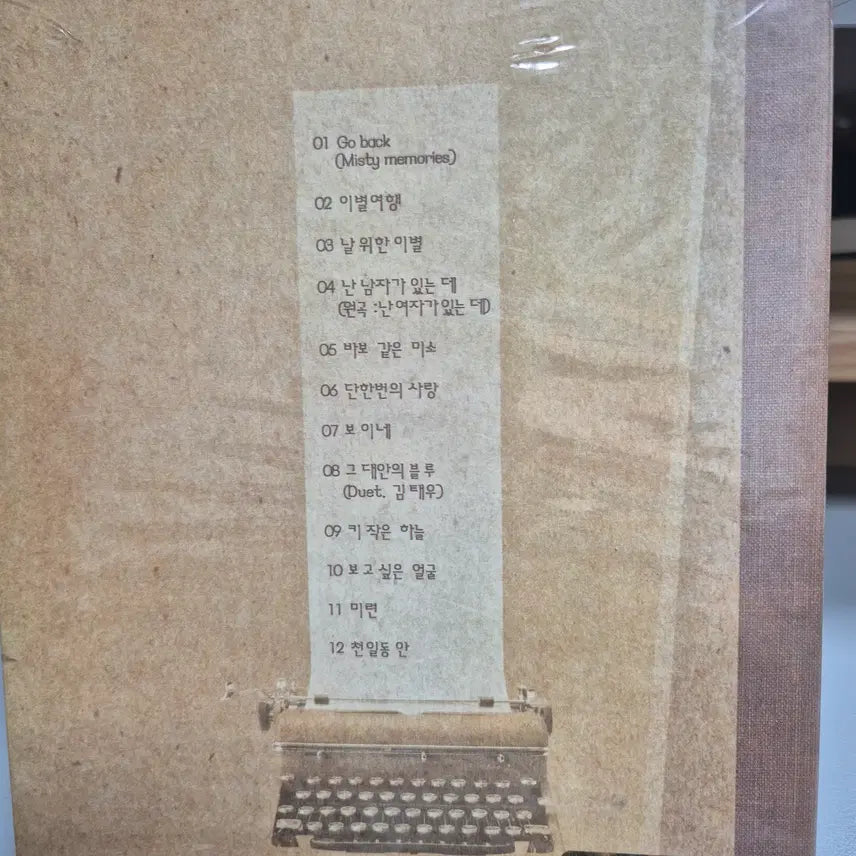 01 Go back
(Misty memories)
02 이별여행
03 날 위한 이별
04 난 남자가 있는 데
(원곡 :난 여자가 있는 데)
05 바보 같은 미소
06 단한번의 사랑
07 보이네
08 그대안의 블루
(Duet. 김태우)
09 키 작은 하늘
10 보고싶은 얼굴
11 미련
12 천일동안